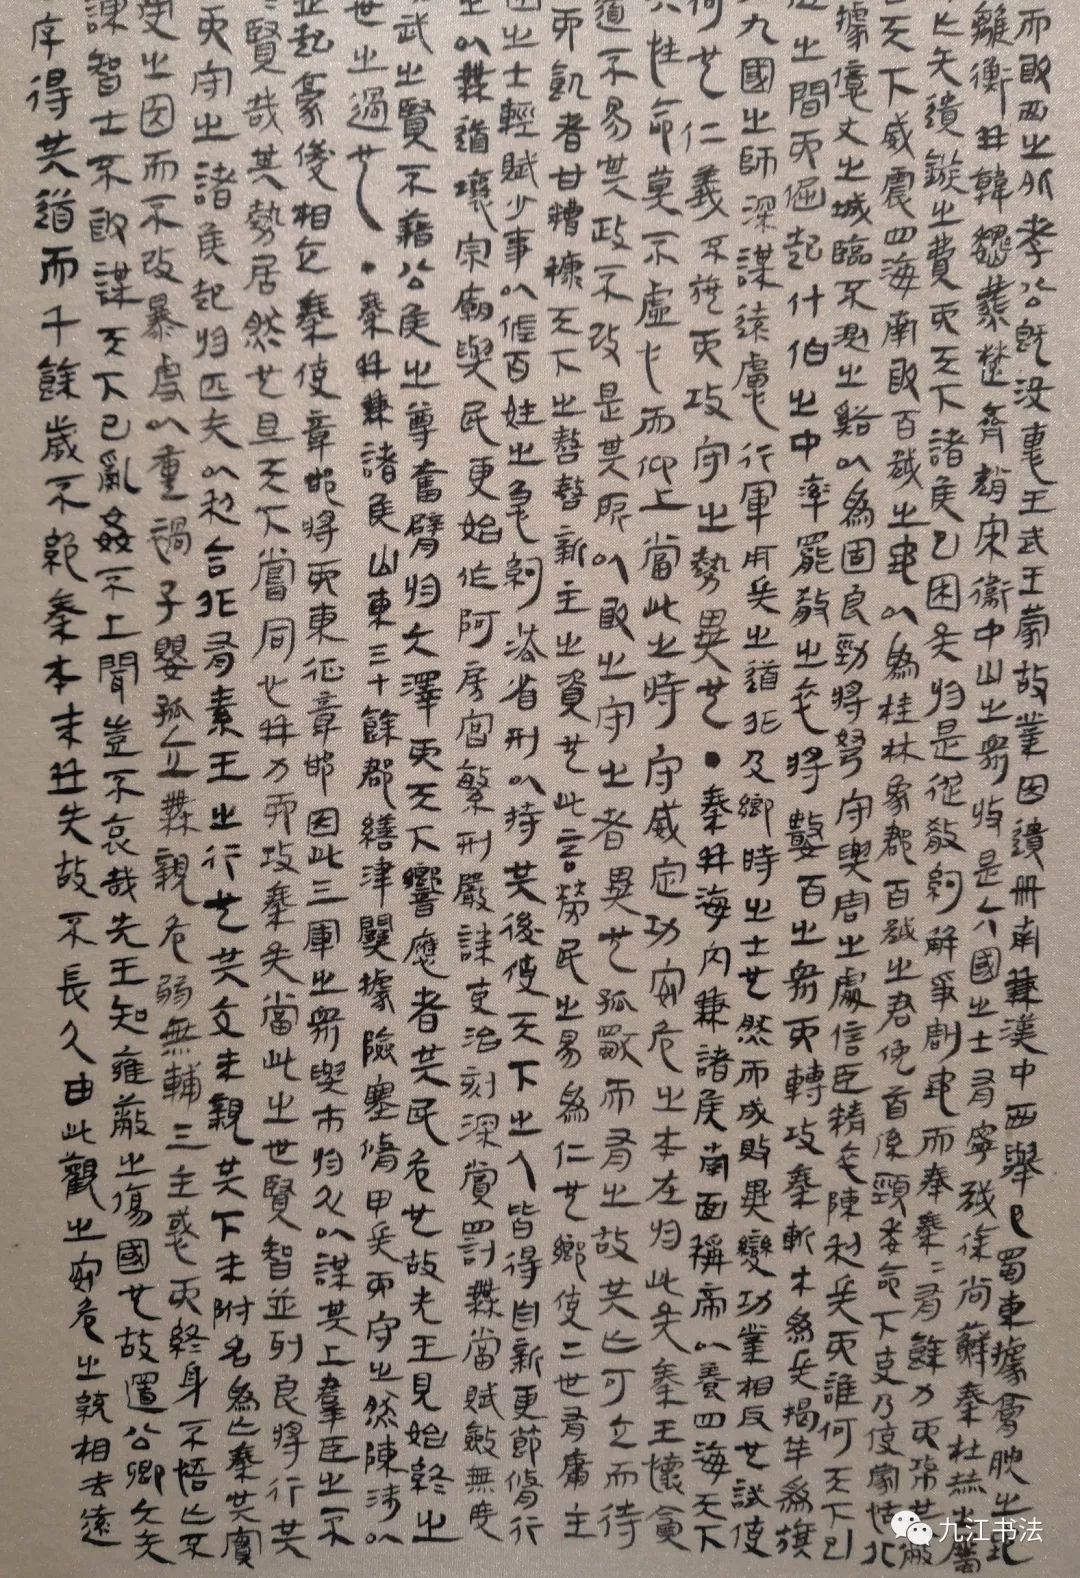 而取西之外孝公既没惠王武王蒙故業因遺冊南兼漢中西舉巴蜀東據膏腴之地
離衡并韓魏燕楚齊趙宋衛中山之眾於是六國之士有寧越徐尚蘇秦杜赫之屬
亡矢遺鏃之費而天下諸侯已困矣於是從散約解爭割地而奉秦秦有餘力而制其敝
天下威震四海南取百越之地以為桂林象郡百越之君俛首係頸委命下吏乃使蒙恬北
據億丈之城臨不測之谿以為固良勁將弩守之處信臣精卒陳利兵而誰何天下已
之間而倔起什伯之中率罷散之卒將數百之眾而轉攻秦斬木為兵揭竿為旗
九國之師深謀遠慮行軍用兵之道非及鄉時之士也然而成敗異變功業相反也試使
何也仁義不施而攻守之勢異也●秦并海内兼諸侯南面稱帝以養四海天下
性命莫不虛心而仰上當此之時守威定功安危之本在於此矣秦王懷貪
道不易其政不改是其所以取之守之者異也孤獨而有之故其亡可立而待
而飢者甘糟糠天下之嗸嗸新主之資也此言勞民之易為仁也鄉使二世有庸主
之士輕賦少事以佐百姓之急約法省刑以持其後使天下之人皆得自新更節脩行
以無道壞宗廟與民更始作阿房宮繁刑嚴誅吏治刻深賞罰無當賦斂無度
武之賢不藉公侯之尊奮臂於大澤而天下響應者其民危也故先王見始終之
世之過也●秦并兼諸侯山東三十餘郡繕津關據險塞脩甲兵而守之然陳涉以
並起豪俊相立秦使章邯將而東征章邯因此三軍之眾與市於外以謀其上羣臣之不
賢哉其勢居然也且天下嘗同心并力而攻秦矣當此之世賢智並列良將行其
而守之諸侯起於匹夫以利合非有素王之行也其交未親其下未附名為亡秦其實
之因而不改暴虐以重禍子嬰孤立無親危弱無輔三主惑而終身不悟亡不
謀智士不敢謀天下已亂姦不上聞豈不哀哉先王知雍蔽之傷國也故置公卿大夫
序得其道而千餘歲不絕秦本末并失故不長久由此觀之安危之統相去遠
九江书法